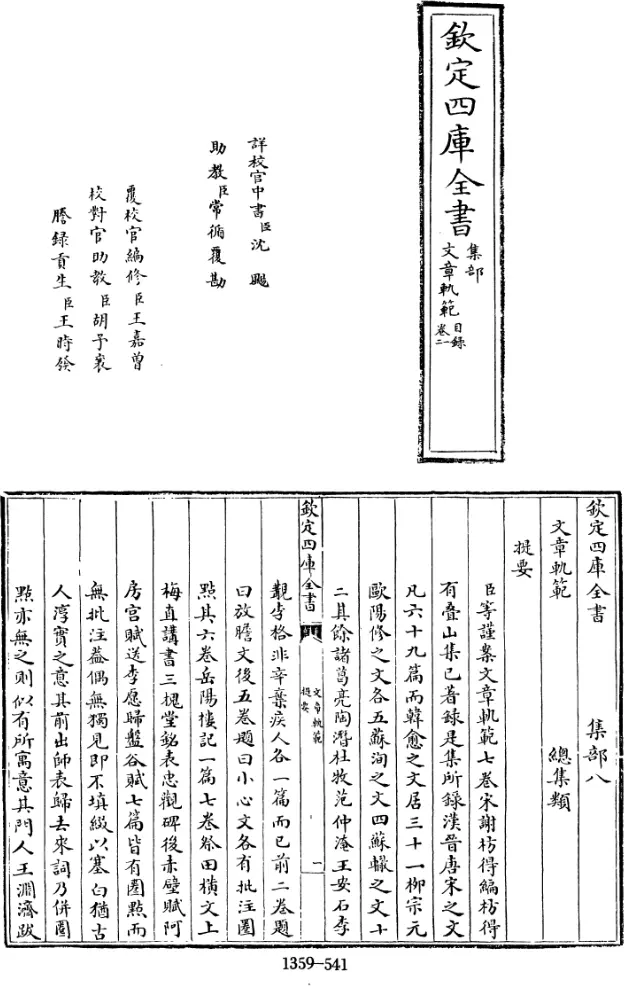 欽定四庫全書
集部
文章軌範
目錄
卷一二
詳校官中書臣沈颺
助教臣常循覆勘
覆校官編修臣王嘉曾
校對官助教臣胡予襄
謄録貢生臣王時發
欽定四庫全書 集部八
文章軌範 總集類
提要
臣等謹案文章軌範七卷宋謝枋得編枋得
有疊山集已著録是集所録漢晉唐宋之文
凡六十九篇而韓愈之文居三十一柳宗元
歐陽修之文各五蘇洵之文四蘇軾之文十
二其餘諸葛亮陶潛杜牧范仲淹王安石李
欽定四庫全書
文章軌範
提要
一
觀李格非辛棄疾人各一篇而已前二卷題
曰放膽文後五卷題曰小心文各有批注圈
點其六卷岳陽樓記一篇七卷祭田橫文上
梅直講書三槐堂銘表忠觀碑後赤壁賦阿
房宮賦送李愿歸盤谷賦七篇皆有圈點而
無批注葢偶無獨見即不填綴以塞白猶古
人淳實之意其前出師表歸去來詞乃併圈
點亦無之則似有所寓意其門人王淵濟跋
1359-541